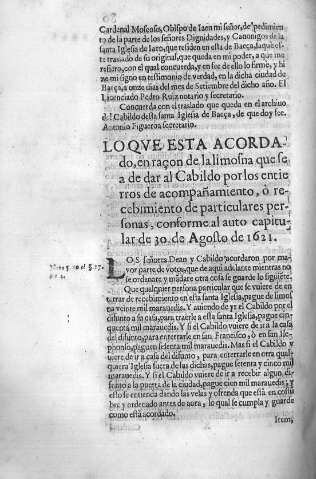 Cardenal Moscoso, Obispo de Iaen mi señor, de pedimien
to de la parte de los señores Dignidades, y Canonigos de la
santa Iglesia de Iaen, que residen en esta de Baeça, saquè es-
te traslado de su original, que queda en mi poder, a que me
refiero, con el qual concuerda, y en fee de ello lo firme, y hi-
ze mi signo en testimonio de verdad, en la dicha ciudad de
Baeça, a onze dias del mes de Setiembre del dicho año. El
Licenciado Pedro Ruiz notario y secretario.
Concuerda con el traslado que queda en el archiuo
del Cabildo desta santa Iglesia de Baeça, de que doy fee.
Antonio Figueroa secretario.
LO QVE ESTA ACORDA-
do, en raçon de la limosna que se
a de dar al Cabildo por los entie
rros de acompañamiento, ò re-
cebimiento de particulares per-
sonas, conforme al auto capitu-
lar de 30. de Agosto de 1621.
LOS señores Dean y Cabildo acordaron por ma-
yor parte de votos, que de aqui adelante mientras no
se ordenare y mãdare otra cosa se guarde lo siguiẽte.
Que qualquiera persona particular que se vuiere de en-
trar de recebimiento en esta santa Iglesia, pague de limos
na veinte mil marauedis. Y auiendo de yr el Cabildo por el
difunto a su casa, para traerle a esta santa Iglesia, pague cin-
quenta mil marauedis. Y si el Cabildo vuiere de ir a la casa
del difunto, para enterrarle en san Francisco, ò en san Ilde-
phonso, paguen sesenta mil marauedis. Mas si el Cabildo v
uiere de ir a casa del difunto, para enterrarle en otra qual-
quiera Iglesia fuera de las dichas, pague setenta y cinco mil
marauedis. Y si el Cabildo vuiere de ir a recebir algun di-
funto a la puerta de la ciudad, pague cien mil marauedis; y
esto se entienda dando las velas y ofrenda que està en costũ
bre y ordenado antes de aora, lo qual se cumpla y guarde
como està acordado.
Item,